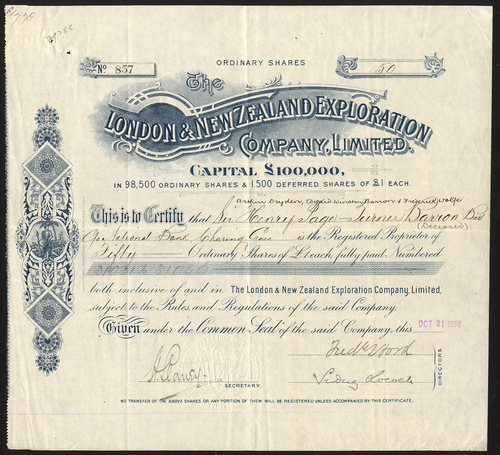 ORDINARY SHARES
No. 857
50
The
LONDON & NEW ZEALAND EXPLORATION
COMPANY, LIMITED.
CAPITAL £100,000,
IN 98,500 ORDINARY SHARES & 1,500 DEFERRED SHARES OF £1 EACH.
Arthur Dryden, Winston Barron & Frederick Wolfe
This is to Certify that Sir Henry Page Turner Barron Bart
(Deceased)
National Bank Charing Cross is the Registered Proprietor of
Fifty Ordinary Shares of £1 each, fully paid, Numbered
both inclusive of and in The London & New Zealand Exploration Company, Limited,
subject to the Rules and Regulations of the said Company.
Given under the Common Seal of the said Company, this OCT 31
DIRECTORS
SECRETARY.
NO TRANSFER OF THE ABOVE SHARES OR ANY PORTION OF THEM WILL BE REGISTERED UNLESS ACCOMPANIED BY THIS CERTIFICATE.